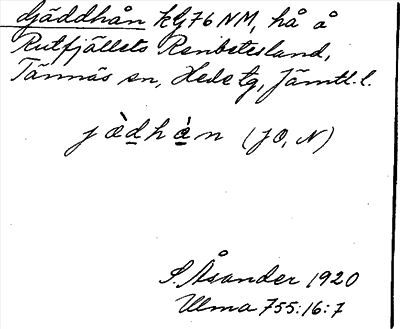 Gjäddhån KG76 NM, hå å
Rutfjällets Renbetesland,
Tännäs sn, Hede tg, Jämtl. l.
jàd̲hà̲n (JO, N)
S. Åsander 1920
Ulma 755:16:7